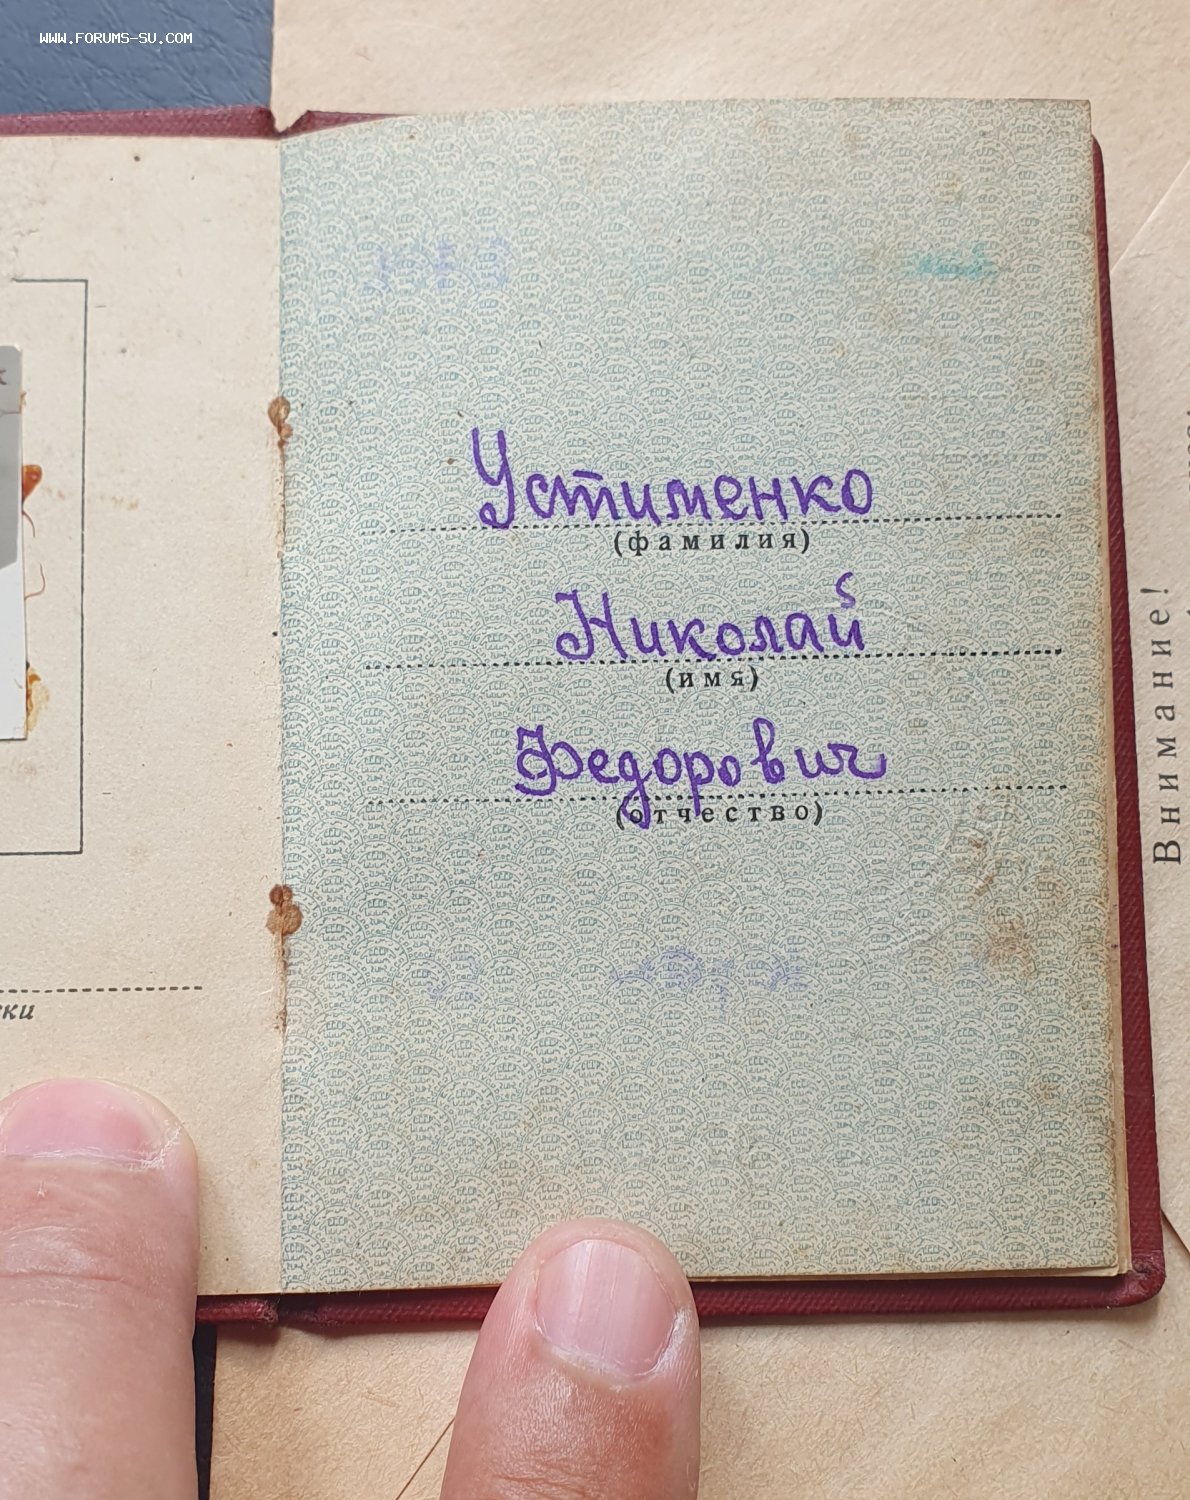 WWW.FORUMS-SU.COM
Устименко
(фамилия)
Николай
(имя)
Федорович
(отчество)
Внимание!